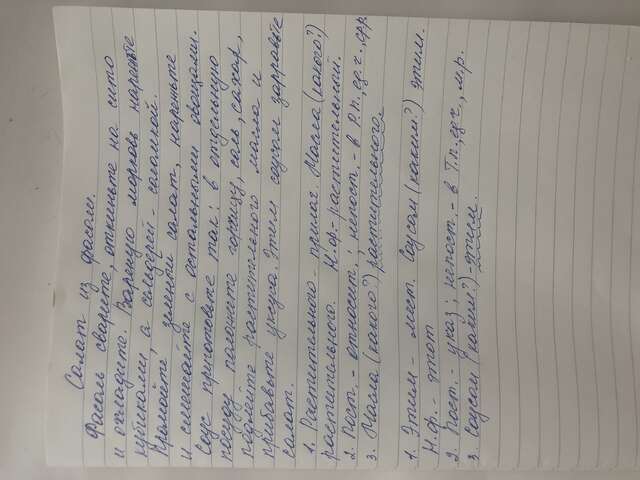 Салат из фасоли.
Фасоль сварите, откиньте на сито
и охладите. Варёную морковь нарежьте
кубиками а сельдерей - соломкой.
Промойте зеленый салат, нарежьте
и смешайте с остальными овощами.
Соус приготовьте так: в отдельную
посуду положите горчицу, соль, сахар,
подлейте растительного масла и
прибавьте уксуса. Этим соусом заправьте
салат.
1. Растительного - прилаг. Масла (какого?)
растительного. Н.ф.-растительный.
2. Пост. - относит.; непост. - в Р.п., ед.ч., ср.р.
3. Масла (какого?) растительного.
1. Этим - мест. Соусом (каким?) этим.
Н.ф. - этот
2. Пост. - указ; непост. - в Т.п., ед.ч., м.р.
3. Соусом (каким?) - этим.